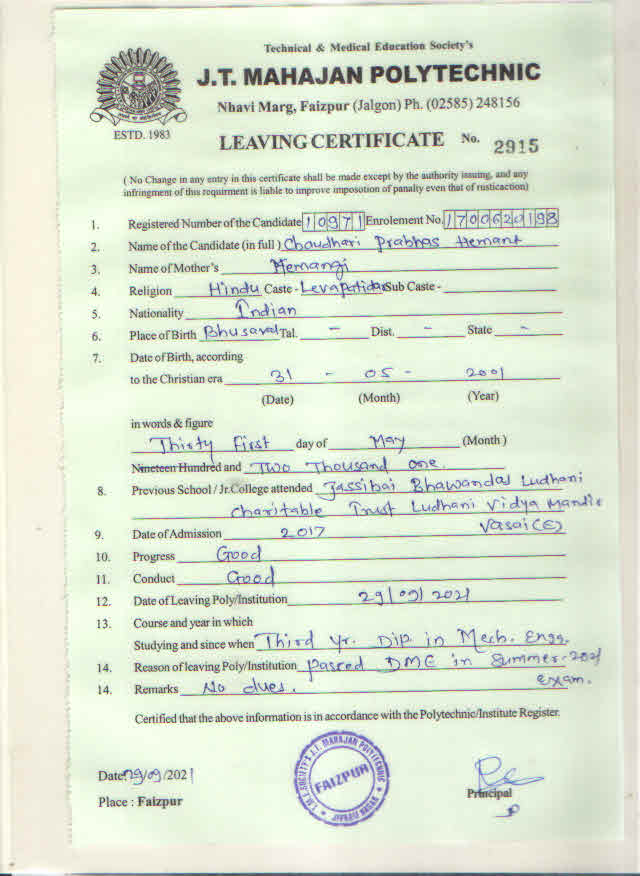 Technical & Medical Education Society's
J.T. MAHAJAN POLYTECHNIC
Nhavi Marg, Faizpur (Jalgon) Ph. (02585) 248156
ESTD. 1983
LEAVING CERTIFICATE No. 2915
( No Change in any entry in this certificate shall be made except by the authority issuing, and any
infringment of this requirment is liable to improve imposotion of panalty even that of rusticaction)
1. Registered Number of the Candidate 10971 Enrolement No. 1700620198
2. Name of the Candidate (in full ) Chaudhari Prabhas Hemant
3. Name of Mother's Hemangi
4. Religion Hindu Caste - Levapatidar Sub Caste -
5. Nationality Indian
6. Place of Birth Bhusaval Tal. - Dist. - State -
7. Date of Birth, according
to the Christian era 31 - 05 - 2001
(Date) (Month) (Year)
in words & figure
Thirty First day of May (Month )
Nineteen Hundred and Two Thousand one.
8. Previous School / Jr.College attended Jassibai Bhawandas Ludhani
charitable Trust Ludhani Vidya Mandir
Vasai(E)
9. Date of Admission 2017
10. Progress Good
11. Conduct Good
12. Date of Leaving Poly/Institution 29/09/2021
13. Course and year in which
Studying and since when Third Yr. Dip in Mech. Engg.
14. Reason of leaving Poly/Institution passed DME in Summer-2021
Exam.
14. Remarks No dues.
Certified that the above information is in accordance with the Polytechnic/Institute Register.
Date: 29/09/2021
Place : Faizpur
J.T. MAHAJAN POLYTECHNIC
FAIZPUR
Principal